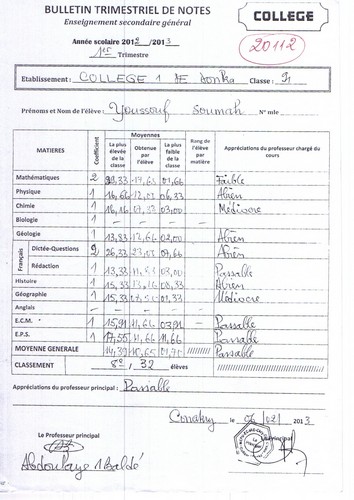 BULLETIN TRIMESTRIEL DE NOTES
Enseignement secondaire général
COLLEGE
Année scolaire 2012 /2013
1er Trimestre
20112
Etablissement : COLLEGE 1 DE Donka Classe :
Prénoms et Nom de l'élève : Youssouf Soumah N° mle
MATIERES Coefficient Moyennes Rang de l'élève par matière Appréciations du professeur chargé du cours
La plus élevée de la classe Obtenue par l'élève La plus faible de la classe
Mathématiques 2 Faible
Physique 1 16,66 06,33 ABien
Chimie 1 16,16 03,00 Médiocre
Biologie – – – –
Géologie 1 13,83 02,00 ABien
Français
Dictée-Questions 2 26,33 ABien
Rédaction 1 13,33 03,00 Passable
Histoire 1 15,33 ABien
Géographie 1 15,33 01,33 Médiocre
Anglais – – – –
E.C.M. 1 15,91 11,66 03,91 – Passable
E.P.S. 1 17,55 11,66 11,66 Passable
MOYENNE GENERALE 14,39 10,65 01,71 ///////// Passable
CLASSEMENT 8e / 32 élèves /////////
Appréciations du professeur principal : Passable
Conakry le 06/02/ 2013
Le Professeur principal
Principal
Abdoulaye 1 Baldé